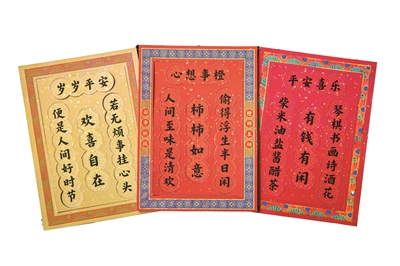 岁岁平安
若无烦事挂心头
欢喜自在
便是人间好时节
心想事橙
偷得浮生半日闲
柿柿如意
人间至味是清欢
平安喜乐
琴棋书画诗酒花
有钱有闲
柴米油盐酱醋茶